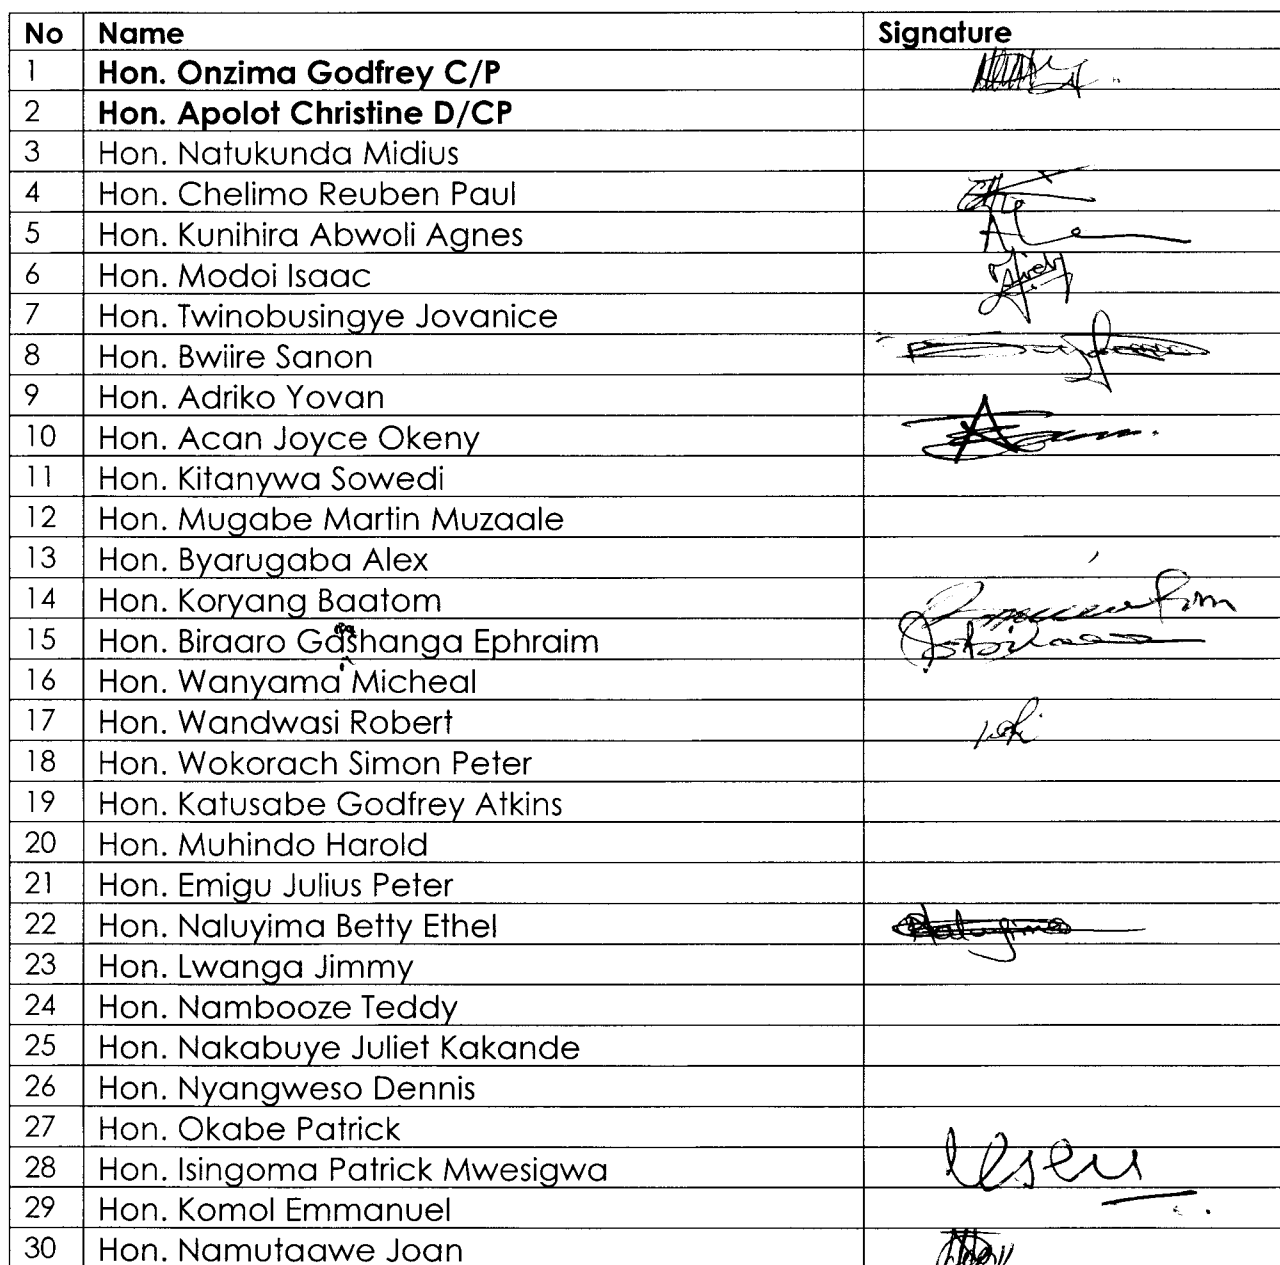 No Name Signature
1 Hon. Onzima Godfrey C/P
2 Hon. Apolot Christine D/CP
3 Hon. Natukunda Midius
4 Hon. Chelimo Reuben Paul
5 Hon. Kunihira Abwoli Agnes
6 Hon. Modoi Isaac
7 Hon. Twinobusingye Jovanice
8 Hon. Bwiire Sanon
9 Hon. Adriko Yovan
10 Hon. Acan Joyce Okeny
11 Hon. Kitanywa Sowedi
12 Hon. Mugabe Martin Muzaale
13 Hon. Byarugaba Alex
14 Hon. Koryang Baatom
15 Hon. Biraaro Gashanga Ephraim
16 Hon. Wanyama Micheal
17 Hon. Wandwasi Robert
18 Hon. Wokorach Simon Peter
19 Hon. Katusabe Godfrey Atkins
20 Hon. Muhindo Harold
21 Hon. Emigu Julius Peter
22 Hon. Naluyima Betty Ethel
23 Hon. Lwanga Jimmy
24 Hon. Nambooze Teddy
25 Hon. Nakabuye Juliet Kakande
26 Hon. Nyangweso Dennis
27 Hon. Okabe Patrick
28 Hon. Isingoma Patrick Mwesigwa
29 Hon. Komol Emmanuel
30 Hon. Namutaawe Joan